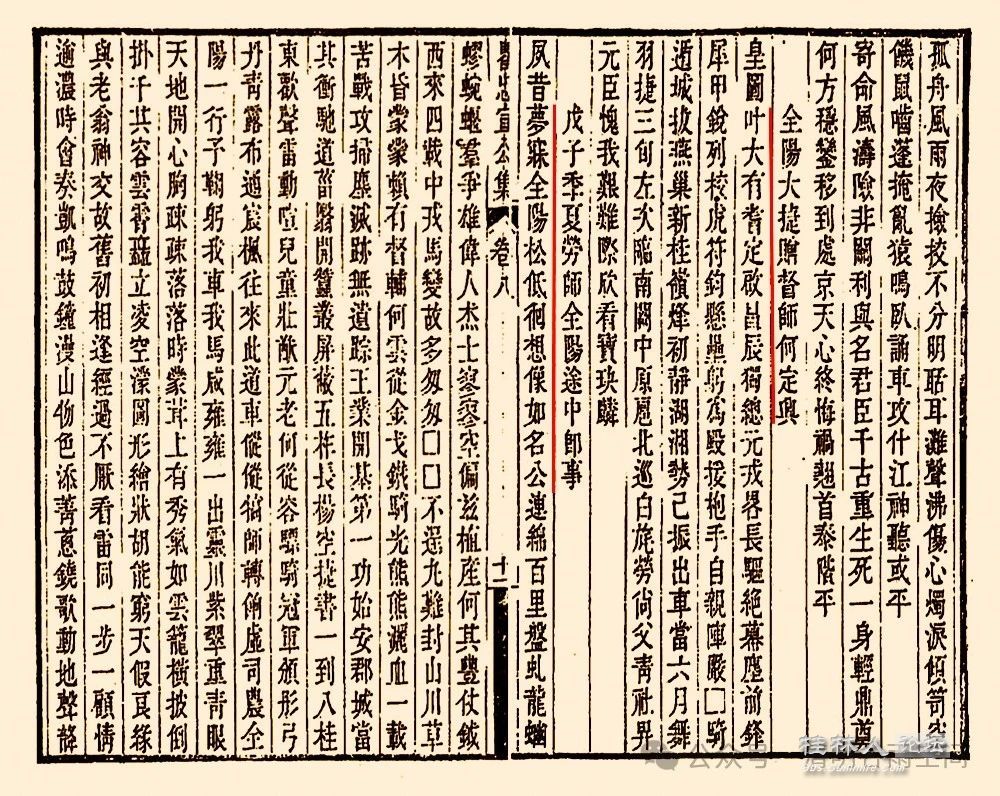 孤舟風雨夜檢校不分明聒耳灘聲沸傷心燭淚傾笥空
饑鼠嚙蓬掩亂猿鳴臥誦車攻什江神聽或平
寄命風濤險非關利與名君臣千古重生死一身輕鼎尊
何方穩鑾移到處京天心終悔禍翹首泰階平
全陽大捷贈督師何定興
皇圖叶大有耆定啟昌辰獨總元戎畧長驅絕幕塵前鋒
犀甲銳列校虎符鈞懸壘躬為殿援枹手自親陣嚴□騎
遁城拔燕巢新桂嶺烽初靜湖湘勢已振出車當六月舞
羽捷三旬左次臨南關中原愿北巡白旄勞尚父青社畀
元臣愧我艱難際欣看寶玦麟
戊子季夏勞師全陽途中即事
夙昔夢寐全陽松低徊想像如名公連綿百里盤虬龍蜿
瞿忠宣公集 卷八 十一
蟉蜿蜒羣爭雄偉人杰士寥寥空偏茲植產何其豐仗鉞
西來四載中戎馬變故多匆匆□□不逞九難封山川草
木皆蒙蒙賴有督輔何雲從金戈鐵騎光熊熊灑血一載
苦戰攻掃塵滅跡無遺踪王業開基第一功始安郡城當
其衝馳道菑翳開蠶叢屏蔽五柞長楊空捷書一到八桂
東歡聲雷動喧兒童壯猷元老何從容驃騎冠軍頒彤弓
丹青露布通宸楓往來此道車傱傱犒師轉餉虛司農全
陽一行予鞠躬我車我馬咸雍雍一出靈川紫翠重青眼
天地開心胸疎疎落落時蒙茸上有秀氣如雲籠橫披倒
掛千其容雲霄矗立凌空濛圖形繪狀胡能窮天假良緣
與老翁神交故舊初相逢經過不厭看雷同一步一顧情
逾濃時會奏凱鳴鼓鐘漫山物色添菁蔥鐃歌動地聲韸
桂林人论坛
bbs.guilinlife.com